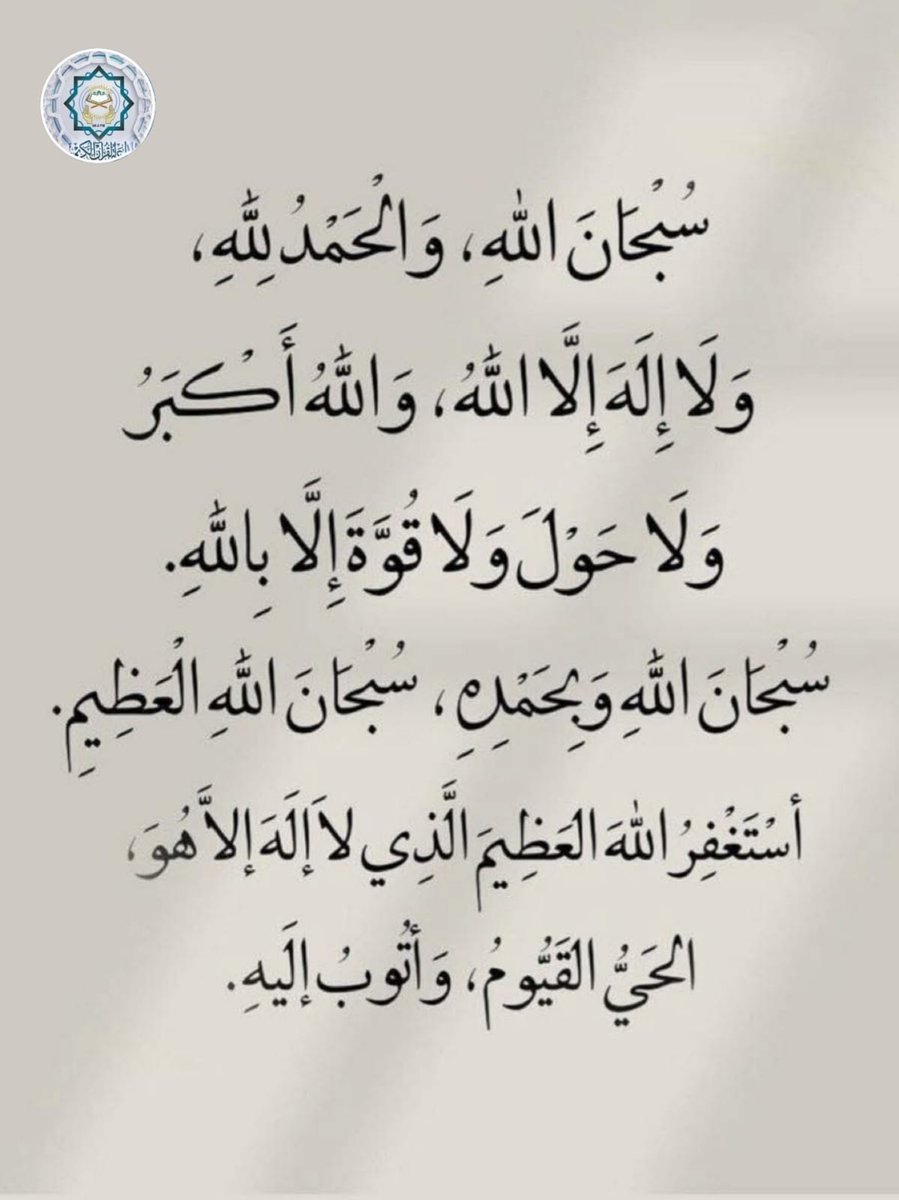 سُبْحَانَ اللهِ، وَالْحَمْدُ لِلّٰهِ،
وَلَا إِلَهَ إِلَّا اللّٰهُ، وَاللّٰهُ أَكْبَرُ
وَلَا حَوْلَ وَلَا قُوَّةَ إِلَّا بِاللّٰهِ.
سُبْحَانَ اللّٰهِ وَبِحَمْدِهِ، سُبْحَانَ اللّٰهِ الْعَظِيمِ.
أسْتَغْفِرُ اللهَ العَظِيمَ الَّذِي لاَ إلَهَ إلاَّ هُوَ،
الحَيُّ القَيُّومُ، وَأتُوبُ إلَيهِ.